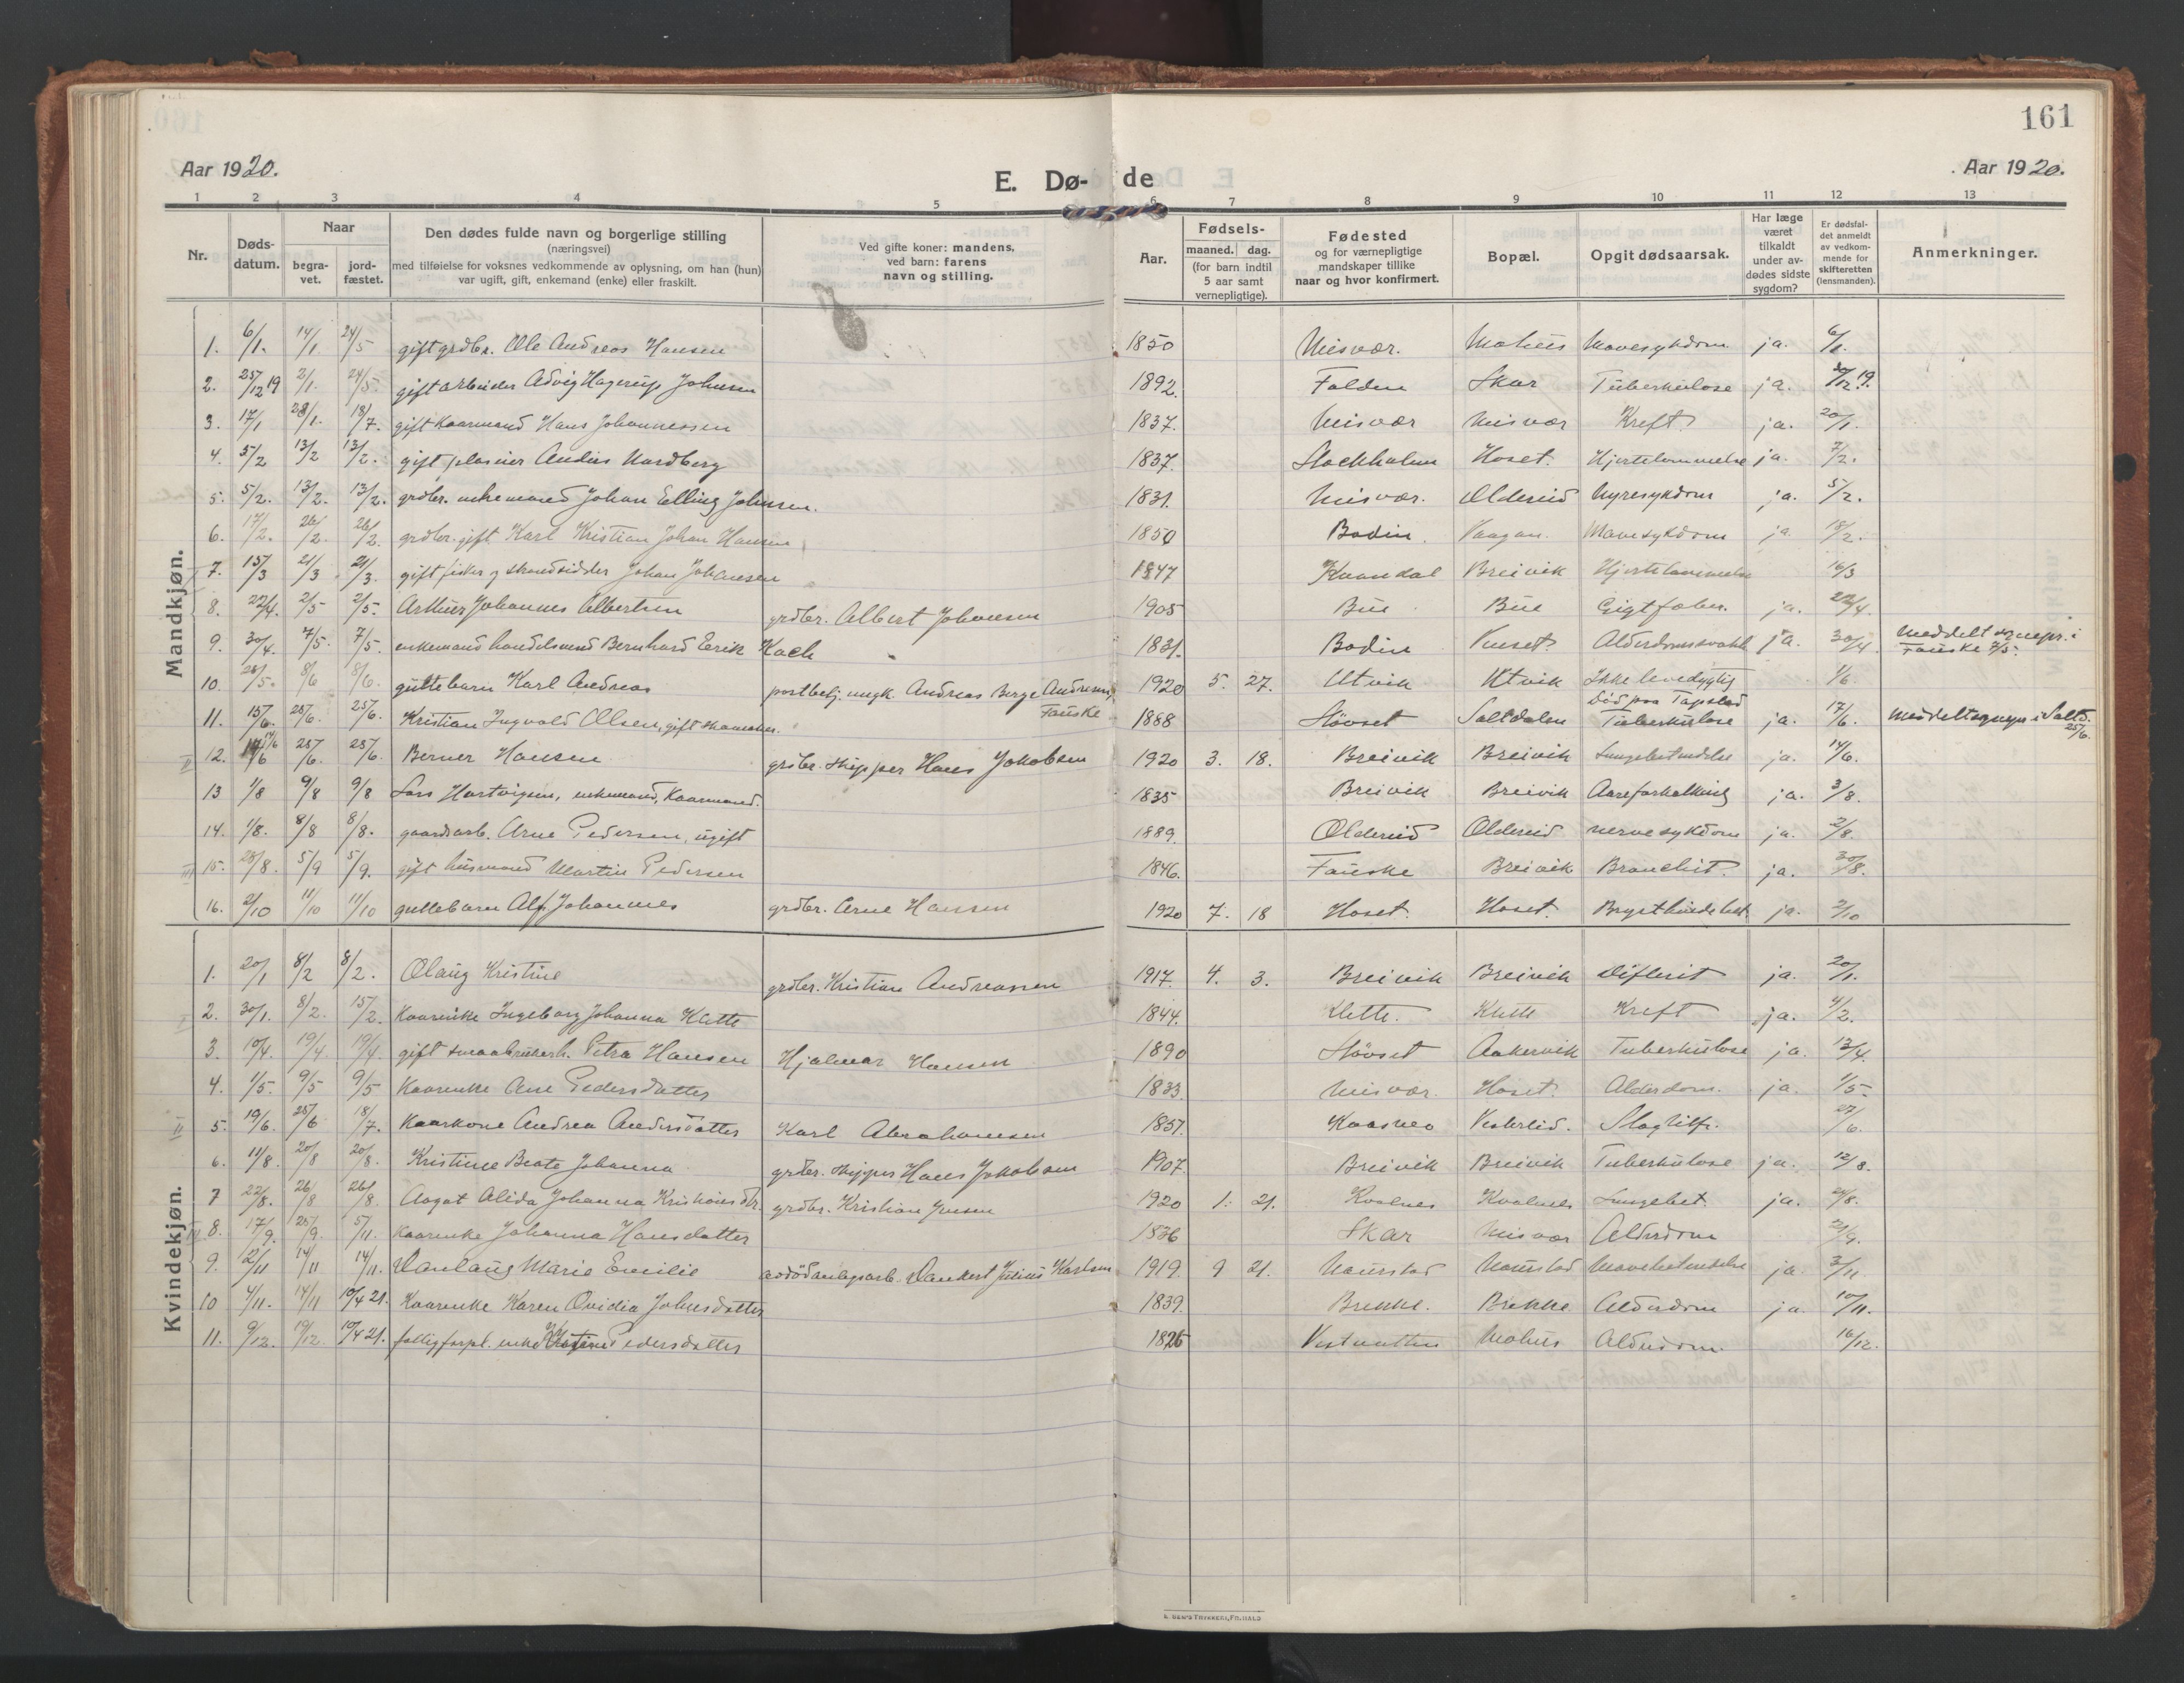 161
Aar 1920.
E. Dø-de
Aar 1920.
1 2 3 4 5 6 7 8 9 10 11 12 13
Nr.
Døds-datum.
Naar
begra-vet.
jord-fæstet.
Den dødes fulde navn og borgerlige stilling
(næringsvei)
med tilføielse for voksnes vedkommende av oplysning, om han (hun)
var ugift, gift, enkemand (enke) eller fraskilt.
Ved gifte koner: mandens,
ved barn: farens
navn og stilling.
Aar.
Fødsels-
maaned. dag.
(for barn indtil
5 aar samt
vernepligtige).
Fødested
og for værnepligtige
mandskaper tillike
naar og hvor konfirmert.
Bopæl.
Opgit dødsaarsak.
Har læge
været
tilkaldt
under av-
dødes sidste
sygdom?
Er dødsfal-
det anmeldt
av vedkom-
mende for
skifteretten
(lensmanden).
Anmerkninger.
Mandkjøn.
1. 6/1. 14/1 24/5 gift grdbr. Ole Andreas Hansen 1850 Misvær. Mohus Mavesykdom ja. 6/1.
2. 25/12 19 2/1. 24/5 gift arbeider Advig Hagerup Johnsen 1892. Folden Skar Tuberkulose ja. 30/12.19.
3. 17/1 28/1. 18/7. gift kaarmand Hans Johannessen 1837. Misvær Misvær Kreft ja. 20/1.
4. 5/2 13/2 13/2. gift Andus Nordberg 1837. Stockholm Hoset. Hjertelammelse ja. 7/2.
5. 5/2. 13/2. 13/2. grdbr. enkemand Johan Elling Johnsen. 1831. Misvær. Oldereid Nyresykdom ja. 5/2.
6. 17/2. 26/2. 26/2. grdbr. gift Karl Kristian Johan Hansen 1850 Bodin. Vaagan. Mavesykdom ja. 18/2.
7. 15/3 21/3 21/3. gift fisker og strandsidder Johan Johansen 1847 Kvandal Breivik Hjertelammelse 16/3
8. 22/4. 2/5 2/5. Arthur Johannes Albertsen grdbr. Albert Johansen 1905 Bue Bue Gigtfeber. ja. 22/4.
9. 30/4. 7/5. 7/5. enkemand handelsmand Bernhard Erik Koch 1831. Bodin Alderdomssvakh. ja. 30/4. meddelt sognepr. i
Fauske 7/5.
10. 28/5. 8/6 8/6. guttebarn Karl Andreas postbetj. ungk. Andreas Berge Andresen,
Fauske 1920 5. 27. Utvik Utvik Ikke levedygtig 1/6.
11. 15/6. 25/6. 25/6. Kristian Ingvald Olsen, gift skomaker. 1888 Støvset Saltdalen Død paa Tapstad
Tuberkulose ja. 17/6. meddelt sognepr. i Saltd.
25/6.
12. 14/6 25/6. 25/6. Berner Hansen grdbr. skipper Hans Jakobsen 1920 3. 18. Breivik Breivik Lungebetendelse ja. 14/6.
13 1/8 9/8 9/8 Lars Hartvigsen, enkemand, Kaarmand. 1835 Breivik Breivik Aareforkalkning ja. 3/8.
14. 1/8. 8/8 8/8. gaardsarb. Arne Pedersen, ugift 1889. Oldereid Oldereid nervesykdom ja. 2/8.
15. 28/8. 5/9 5/9. gift husmand Martin Pedersen 1846. Fauske Breivik Bronchit. ja. 30/8.
16. 2/10 11/10 11/10 guttebarn Alf Johannes grdbr. Arne Hansen 1920 7. 18 Hoset. Hoset. ja. 2/10
Kvindekjøn.
1. 20/1 8/2 8/2. Olaug Kristine grdbr. Kristian Andreassen 1917. 4. 3. Breivik Breivik Difterit ja. 20/1.
2. 30/1. 8/2. 15/2. Kaarenke Ingeborg Johanna Klette 1844. Klette. Klette Kreft ja. 4/2.
3. 10/4. 19/4. 19/4. gift smaabrukerh. Petra Hansen Hjalmar Hansen 1890 Støvset Aakervik Tuberkulose ja. 12/4.
4. 1/5. 9/5 9/5 Kaarenke Ane Pedersdatter 1833. Misvær. Hoset. Alderdom. ja. 1/5.
5. 19/6. 25/6 18/7. Kaarkone Andrea Andersdatter Karl Abrahamsen 1857. Vestereid. Slagtilf. 27/6.
6. 11/8. 20/8 20/8. Kristine Beate Johanna grdbr. skipper Hans Jakobsen 1907. Breivik Breivik Tuberkulose ja. 12/8.
7 22/8. 26/8 26/8. Aagot Alida Johanna Kristiansdtr. grdbr. Kristian Jensen 1920 1. 21. Kvalnes Kvalnes Lungebet. ja. 24/8.
8. 17/9. 25/9. 5/11. Kaarenke Johanna Hansdatter 1836 Skar Misvær Alderdom 21/9.
9. 2/11 14/11 14/11. Vanlaug Marie Emilie avdød anlegsarb. Dankert Julius Karlsen 1919. 9 21. Naurstad Naurstad Mavebetendelse ja. 3/11.
10 4/11. 14/11 10/4 21. Kaarenke Karen Ovidia Johnsdatter 1839. Brekke. Brekke Alderdom ja. 10/11.
11. 9/12. 19/12. 10/4 21. fattigforpl. enke Pedersdatter 1826 Vestvatten Mohus Alderdom. 16/12.